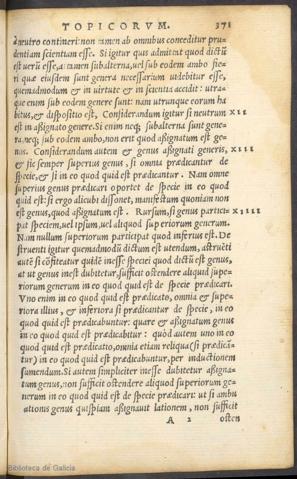 TOPICORVM. 371
à neutro contineri: non tamen ab omnibus conceditur pru-
dentiam scientiam esse. Si igitur quis admitat quod dictũ
est verũ esse, attamen subalterna, vel sub eodem ambo fie-
ri quæ eiusdem sunt genera necessarium videbitur esse,
quemadmodum & in virtute & in scientia accidit: utra-
que enim sub eodem genere sunt: nam utrunque eorum ha
bitus, & dispositio est. Considerandum igitur si neutrum XII
est in assignato genere. Si enim neq; subalterna sunt gene-
ra, neq; sub eodem ambo, non erit quod assignatum est ge-
nus. Considerandum autem & genus assignati generis, XIII
& sic semper superius genus, si omnia prædicantur de
specie, & si in eo quod quid est prædicantur. Nam omne
superius genus prædicari oportet de specie in eo quod
quid est: si ergo alicubi dissonet, manifestum quoniam non
est genus, quod assignatum est. Rursum, si genus partici- XIIII
pat speciem, vel ipsum, vel aliquod superiorum generum.
Nam nullum superiorum participat quod inferius est. De
struenti igitur quemadmodũ dictum est utendum, astruẽti
autẽ si cõfiteatur quidẽ inesse speciei quod dictũ est genus,
at ut genus inest dubitetur, sufficit ostendere aliquid supe-
riorum generum in eo quod quid est de specie prædicari.
Vno enim in eo quod quid est prædicato, omnia & supe-
riora illius, & inferiora si prædicantur de specie, in eo
quod quid est prædicabuntur: quare & assignatum genus
in eo quod quid est prædicabitur: quòd autem uno in eo
quod quid est prædicatio, omnia etiam reliqua (si prædicã-
tur) in eo quod quid est prædicabuntur, per inductionem
sumendum. Si autem simpliciter inesse dubitetur assigna-
tum genus, non sufficit ostendere aliquod superiorum ge-
nerum in eo quod quid est de specie prædicari: ut si ambu
ationis genus quispiam assignauit lationem, non sufficit
A 2 osten
Biblioteca de Galicia